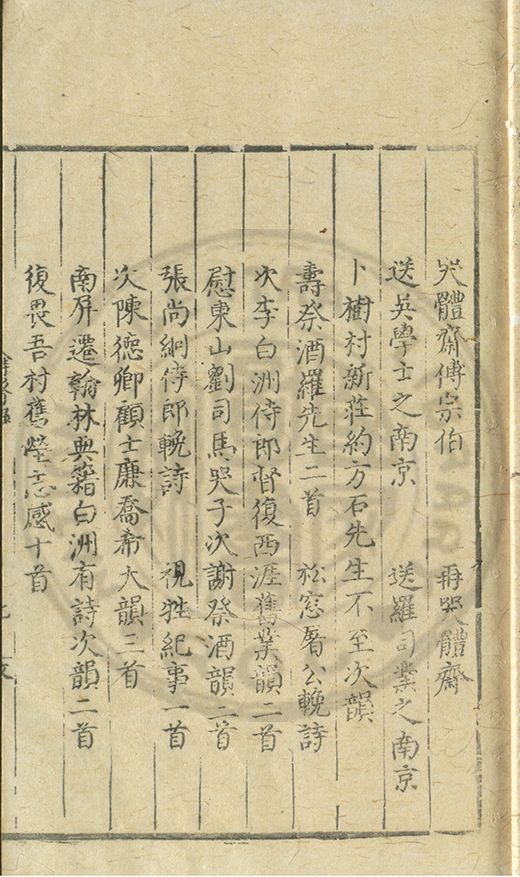 哭體齋傅宗伯　再哭體齋
送吳學士之南京　送羅司業之南京
卜樹村新莊約方石先生不至次韻
壽祭酒羅先生二首　松窓屠公輓詩
次李白洲侍郎督復西涯舊業韻二首
慰東山劉司馬哭子次謝祭酒韻二首
張尚絅侍郎輓詩　視牲紀事一首
次陳德卿顧士廉喬希大韻三首
南屏遷翰林典籍白洲有詩次韻二首
復畏吾村舊塋志感十首